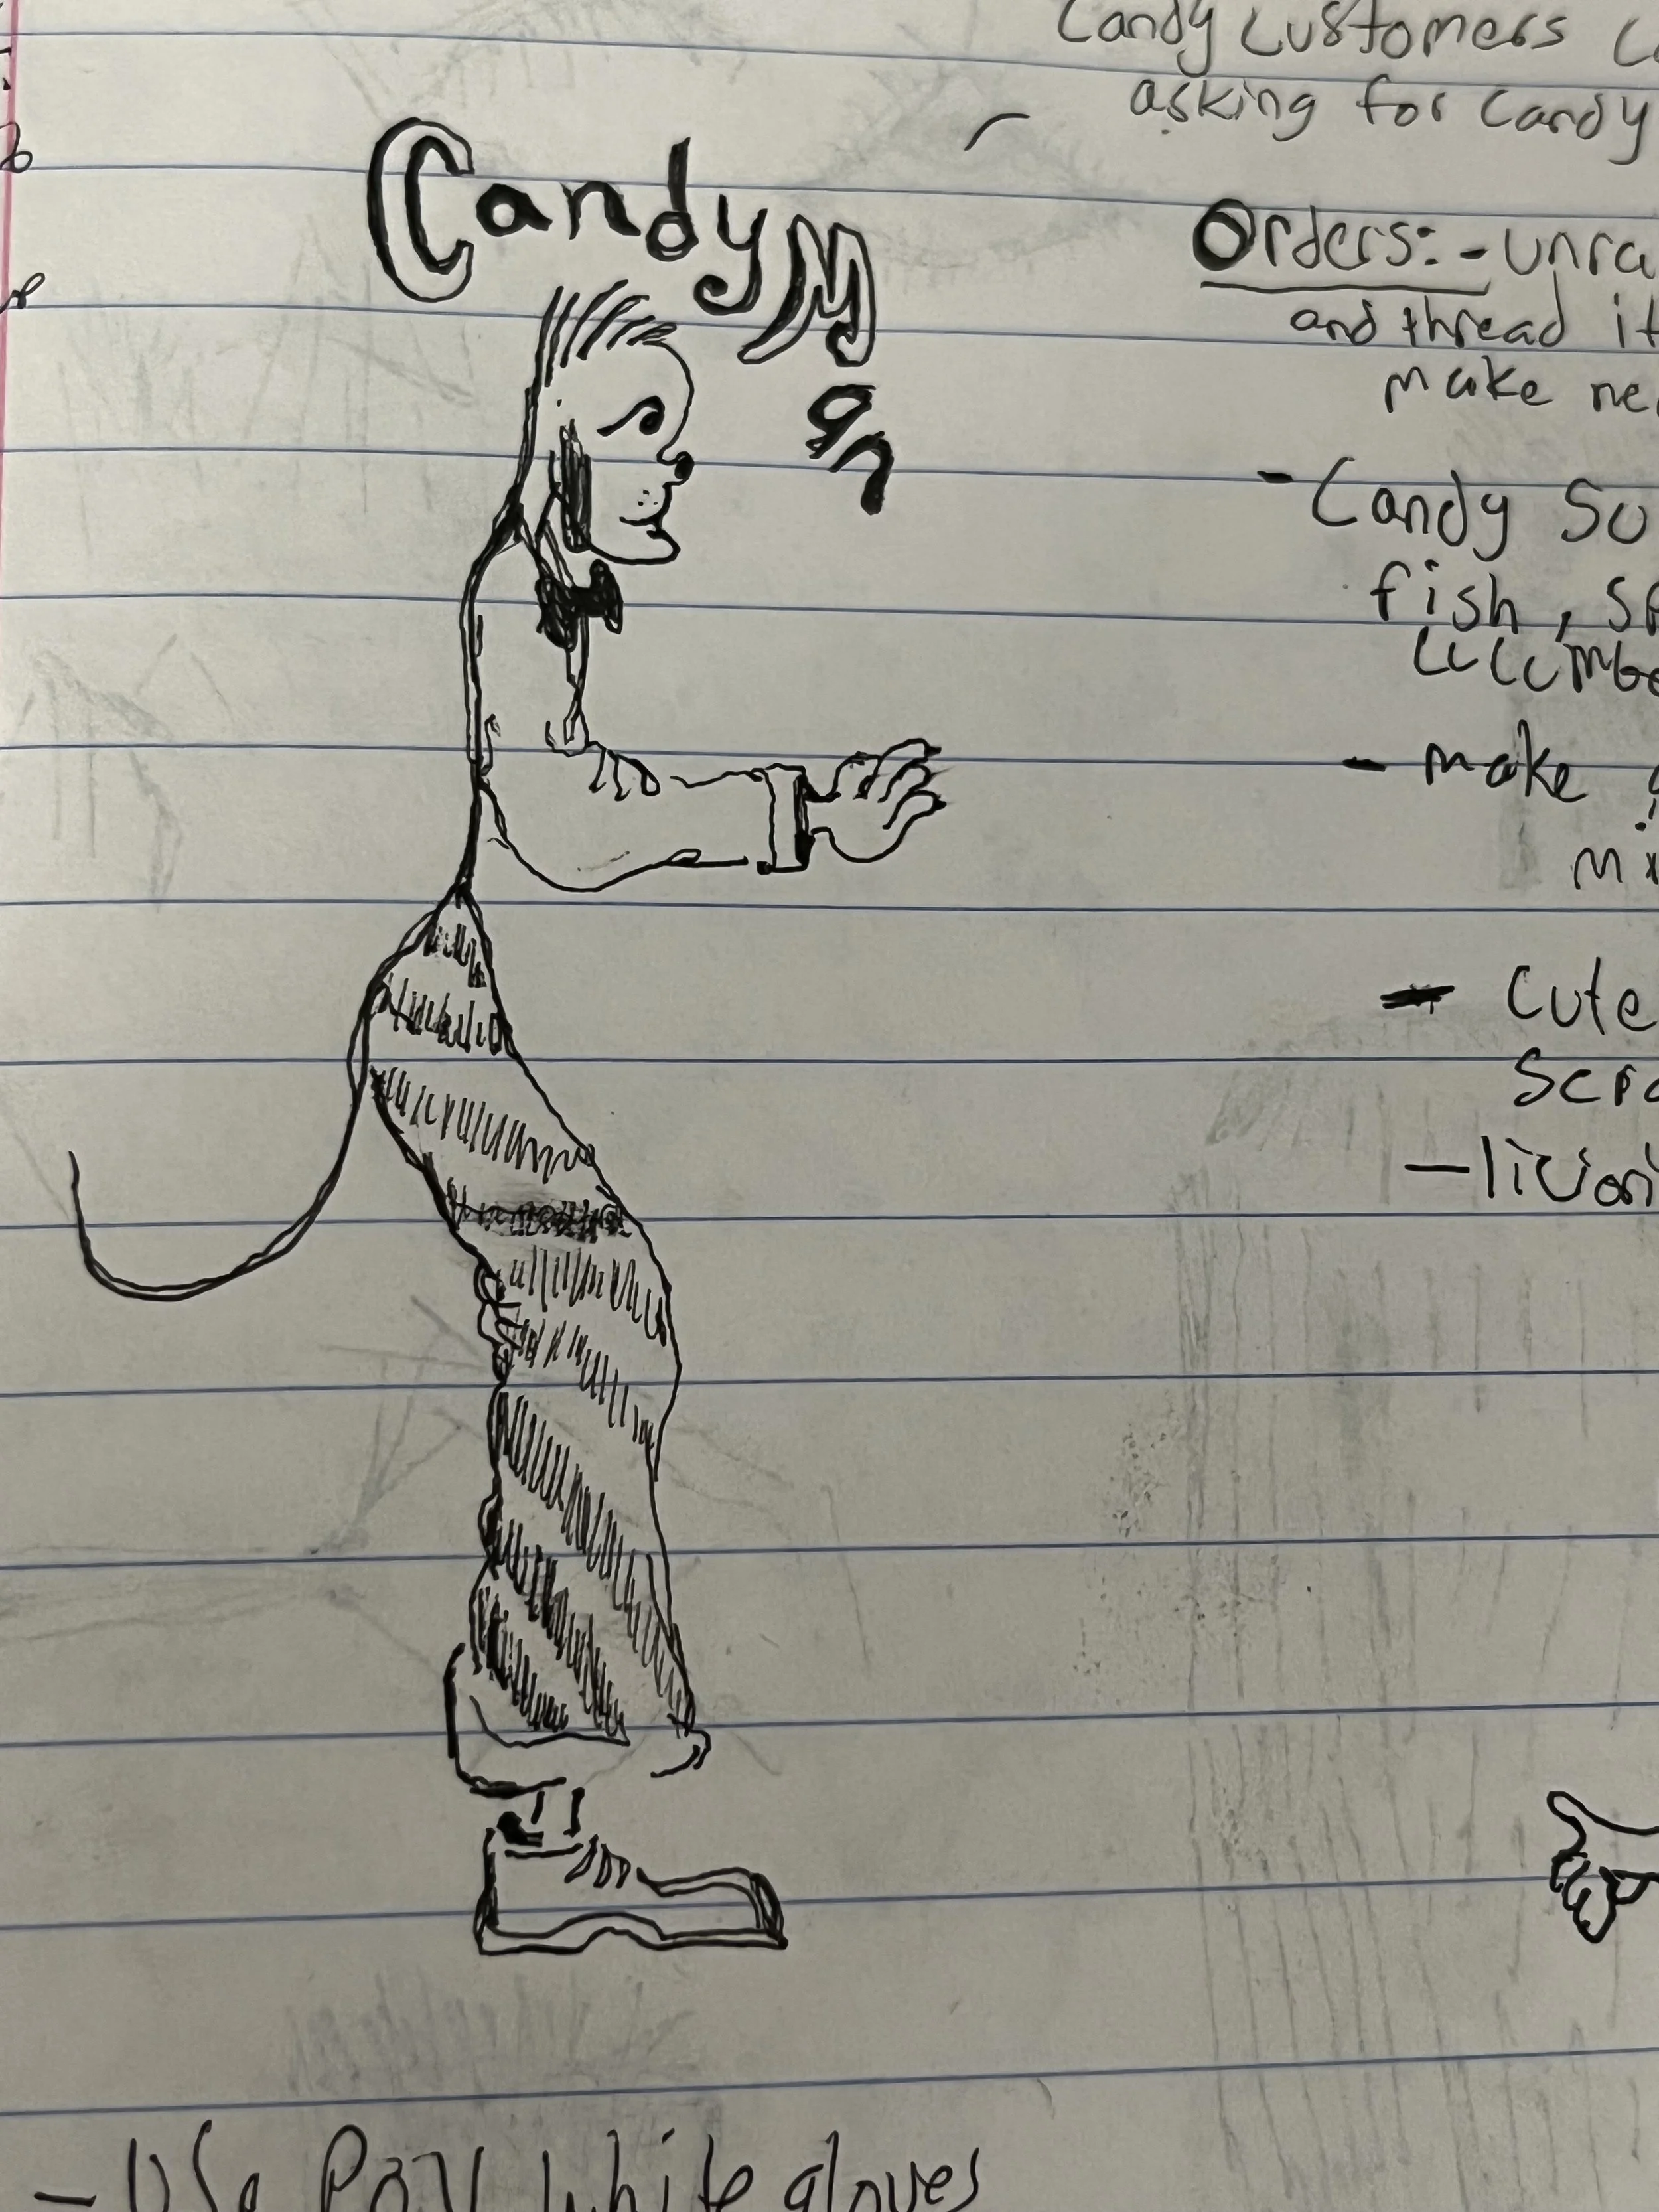 Candy Customers
asking for Candy
Candy Man
Orders: - unra
and thread it
make ne
- Candy Su
fish, sp
cucumbe
- make
mi
- Cute
Scra
- Use POV white gloves